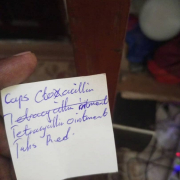 Caps Cloxacillin
Tetracycillin ointment
Tetracyllin ointment
Tabs Pred.